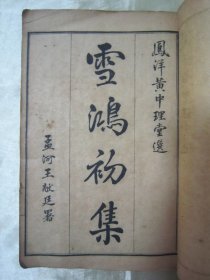 鳳洋黃中理堂選
雪鴻初集
孟河王猷廷署